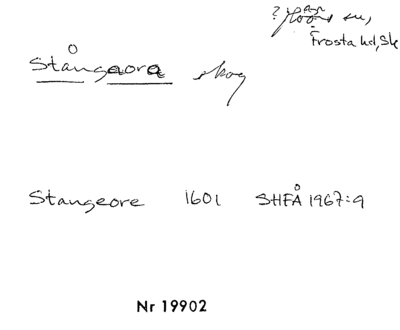 sn,
Frosta hd, Sk
Stångaora skog
Stangeore 1601 SHFÅ 1967:9
Nr 19902